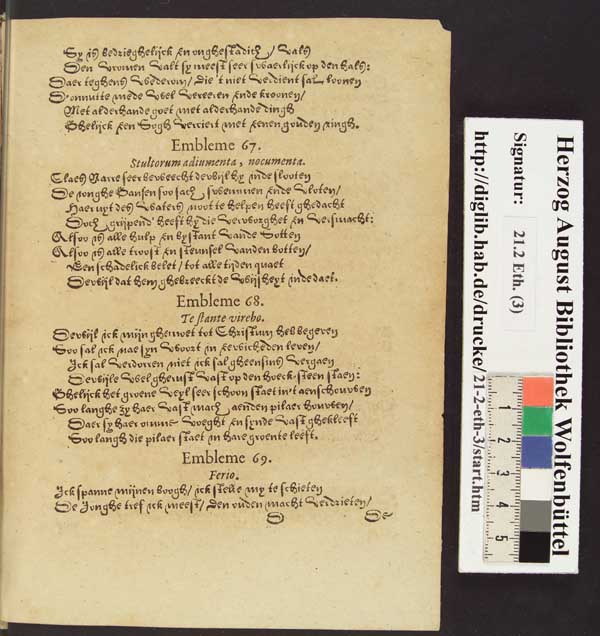 Sy is bedrieghelijck en onghestadich / vals
Den vromen valt sy meest seer swaerlijck op den hals:
Daer teghens wederom / die 't niet verdient sal loonen
D'onnutte mede vvel vereeren ende kroonen /
Met alderhande goet met alderhande dingh
Ghelijck een Sogh verciert met eenen gouden ringh.
Embleme 67.
Stultorum adiumenta, nocumenta.
Claes Narre seer beweecht dewijl hy inde slooten
De jonghe Gansen soo sach swemmen ende vloten /
Haer uyt des waters noot te helpen heeft ghedacht
Doch grijpend' heeft hy die verworghet en versmacht:
Alsoo is alle hulp en bystant vande Sotten
Alsoo is alle troost en steunsel vanden botten /
Een schadelick belet / tot alle tijden quaet
Dewijl dat hem ghebreeckt de wijsheyt inde daet.
Embleme 68.
Te stante virebo.
Dewijl ick mijn ghemoet tot Christum heb begeven
Soo sal ick nae syn woort in eewicheden leven /
Ick sal verdorren niet ick sal gheensins vergaen
Dewijle wel gherust vast op den hoeck-steen staen:
Ghelijck het groene Veyl seer schoon staet in 't aenschouwen
Soo langhe zy haer vast mach aenden pilaer houwen /
Daer sy haer omme voeght en synde vast ghekleeft
Soo langh die pilaer staet in hare groente leeft.
Embleme 69.
Ferio.
Ick spanne mijnen boogh / ick stelle my te schieten
De Jonghe tref ick meest / den ouden macht verdrieten /
D De
Herzog August Bibliothek Wolfenbüttel
Signatur: 21.2 Eth. (3)
http://diglib.hab.de/drucke/21-2-eth-3/start.htm
1 2 3 4 5